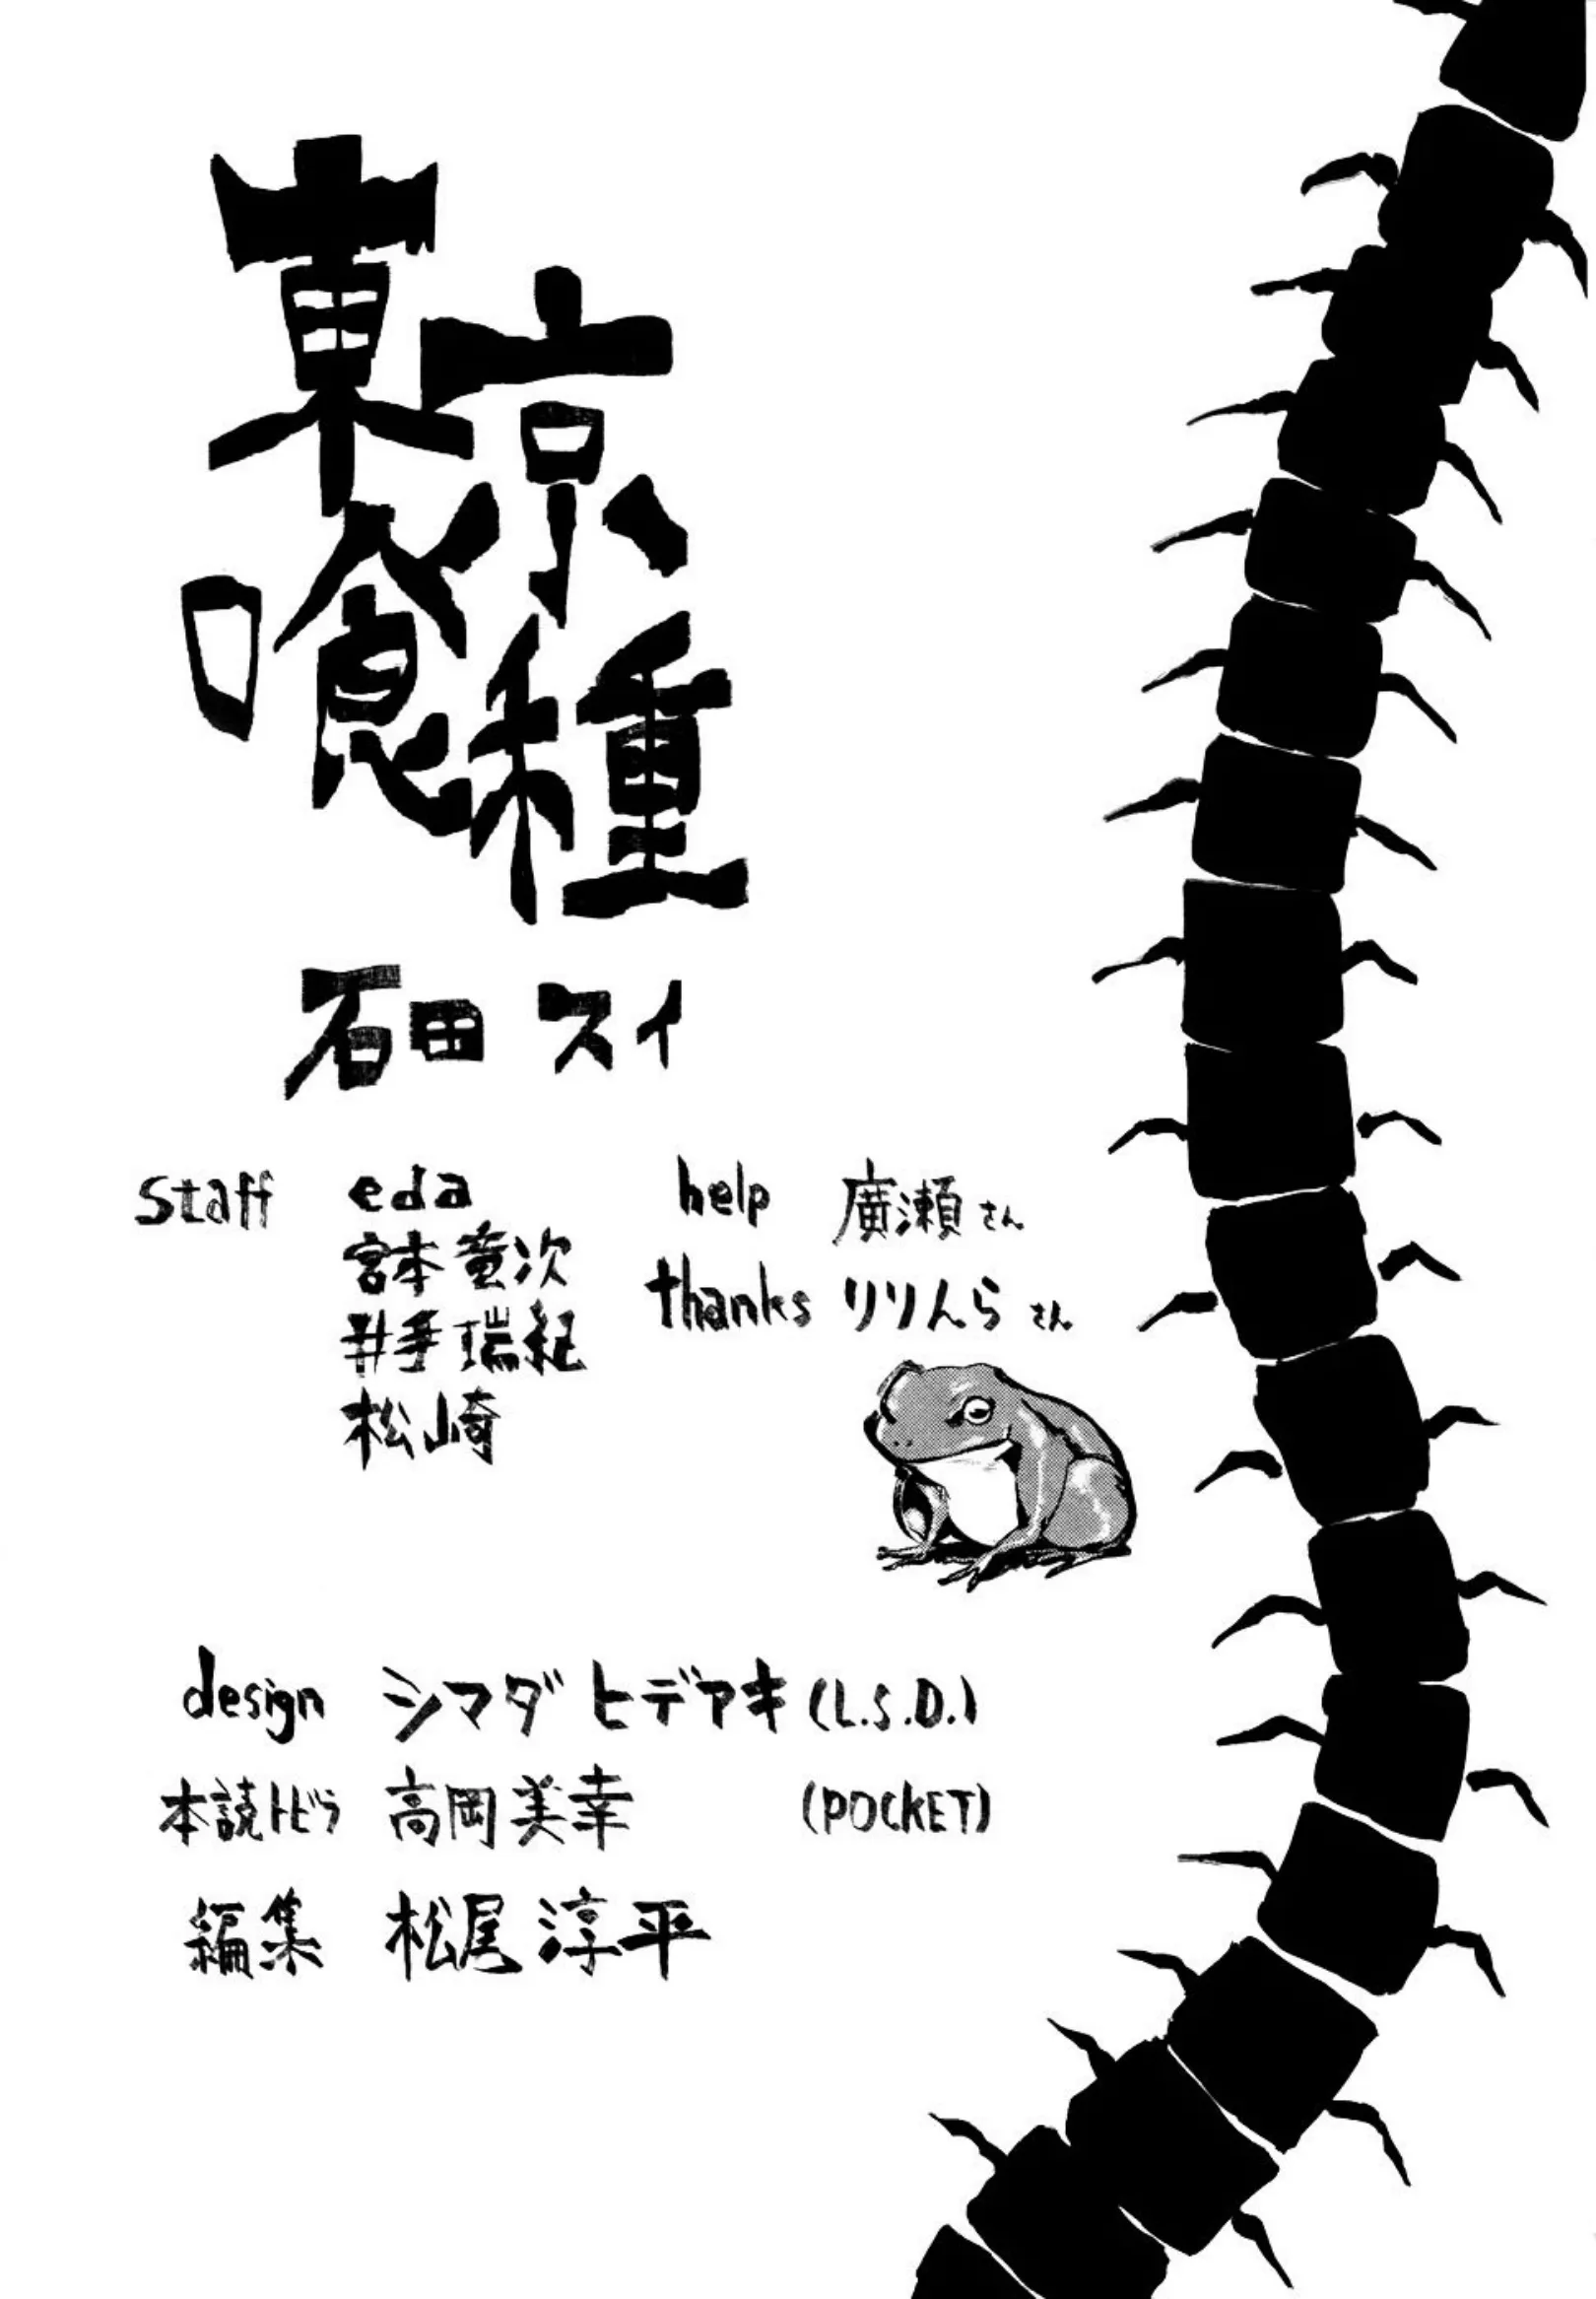 東京
喰種
石田 スイ
staff eda
宮本 竜次
井手 瑞紀
松崎
help 廣瀬さん
thanks りりんらさん
design シマダ ヒデアキ (L.S.D.)
本読トビラ 高岡美幸 (POCKET)
編集 松尾 淳平